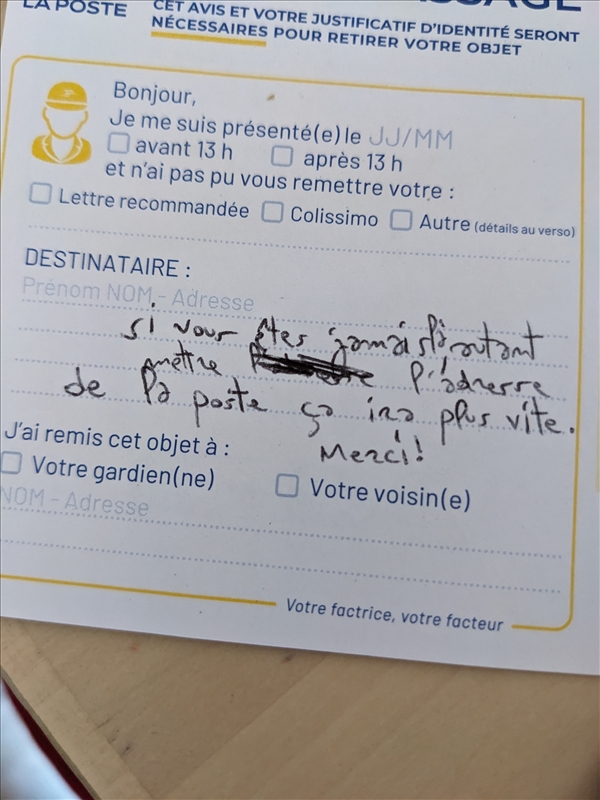 LA POSTE
CET AVIS ET VOTRE JUSTIFICATIF D'IDENTITÉ SERONT
NÉCESSAIRES POUR RETIRER VOTRE OBJET
Bonjour,
Je me suis présenté(e) le JJ/MM
avant 13 h après 13 h
et n'ai pas pu vous remettre votre :
Lettre recommandée Colissimo Autre (détails au verso)
DESTINATAIRE :
Prénom NOM, - Adresse
si vous êtes jamais là autant
mettre l'adresse
de la poste ça ira plus vite.
Merci !
J'ai remis cet objet à :
Votre gardien(ne) Votre voisin(e)
NOM - Adresse
Votre factrice, votre facteur